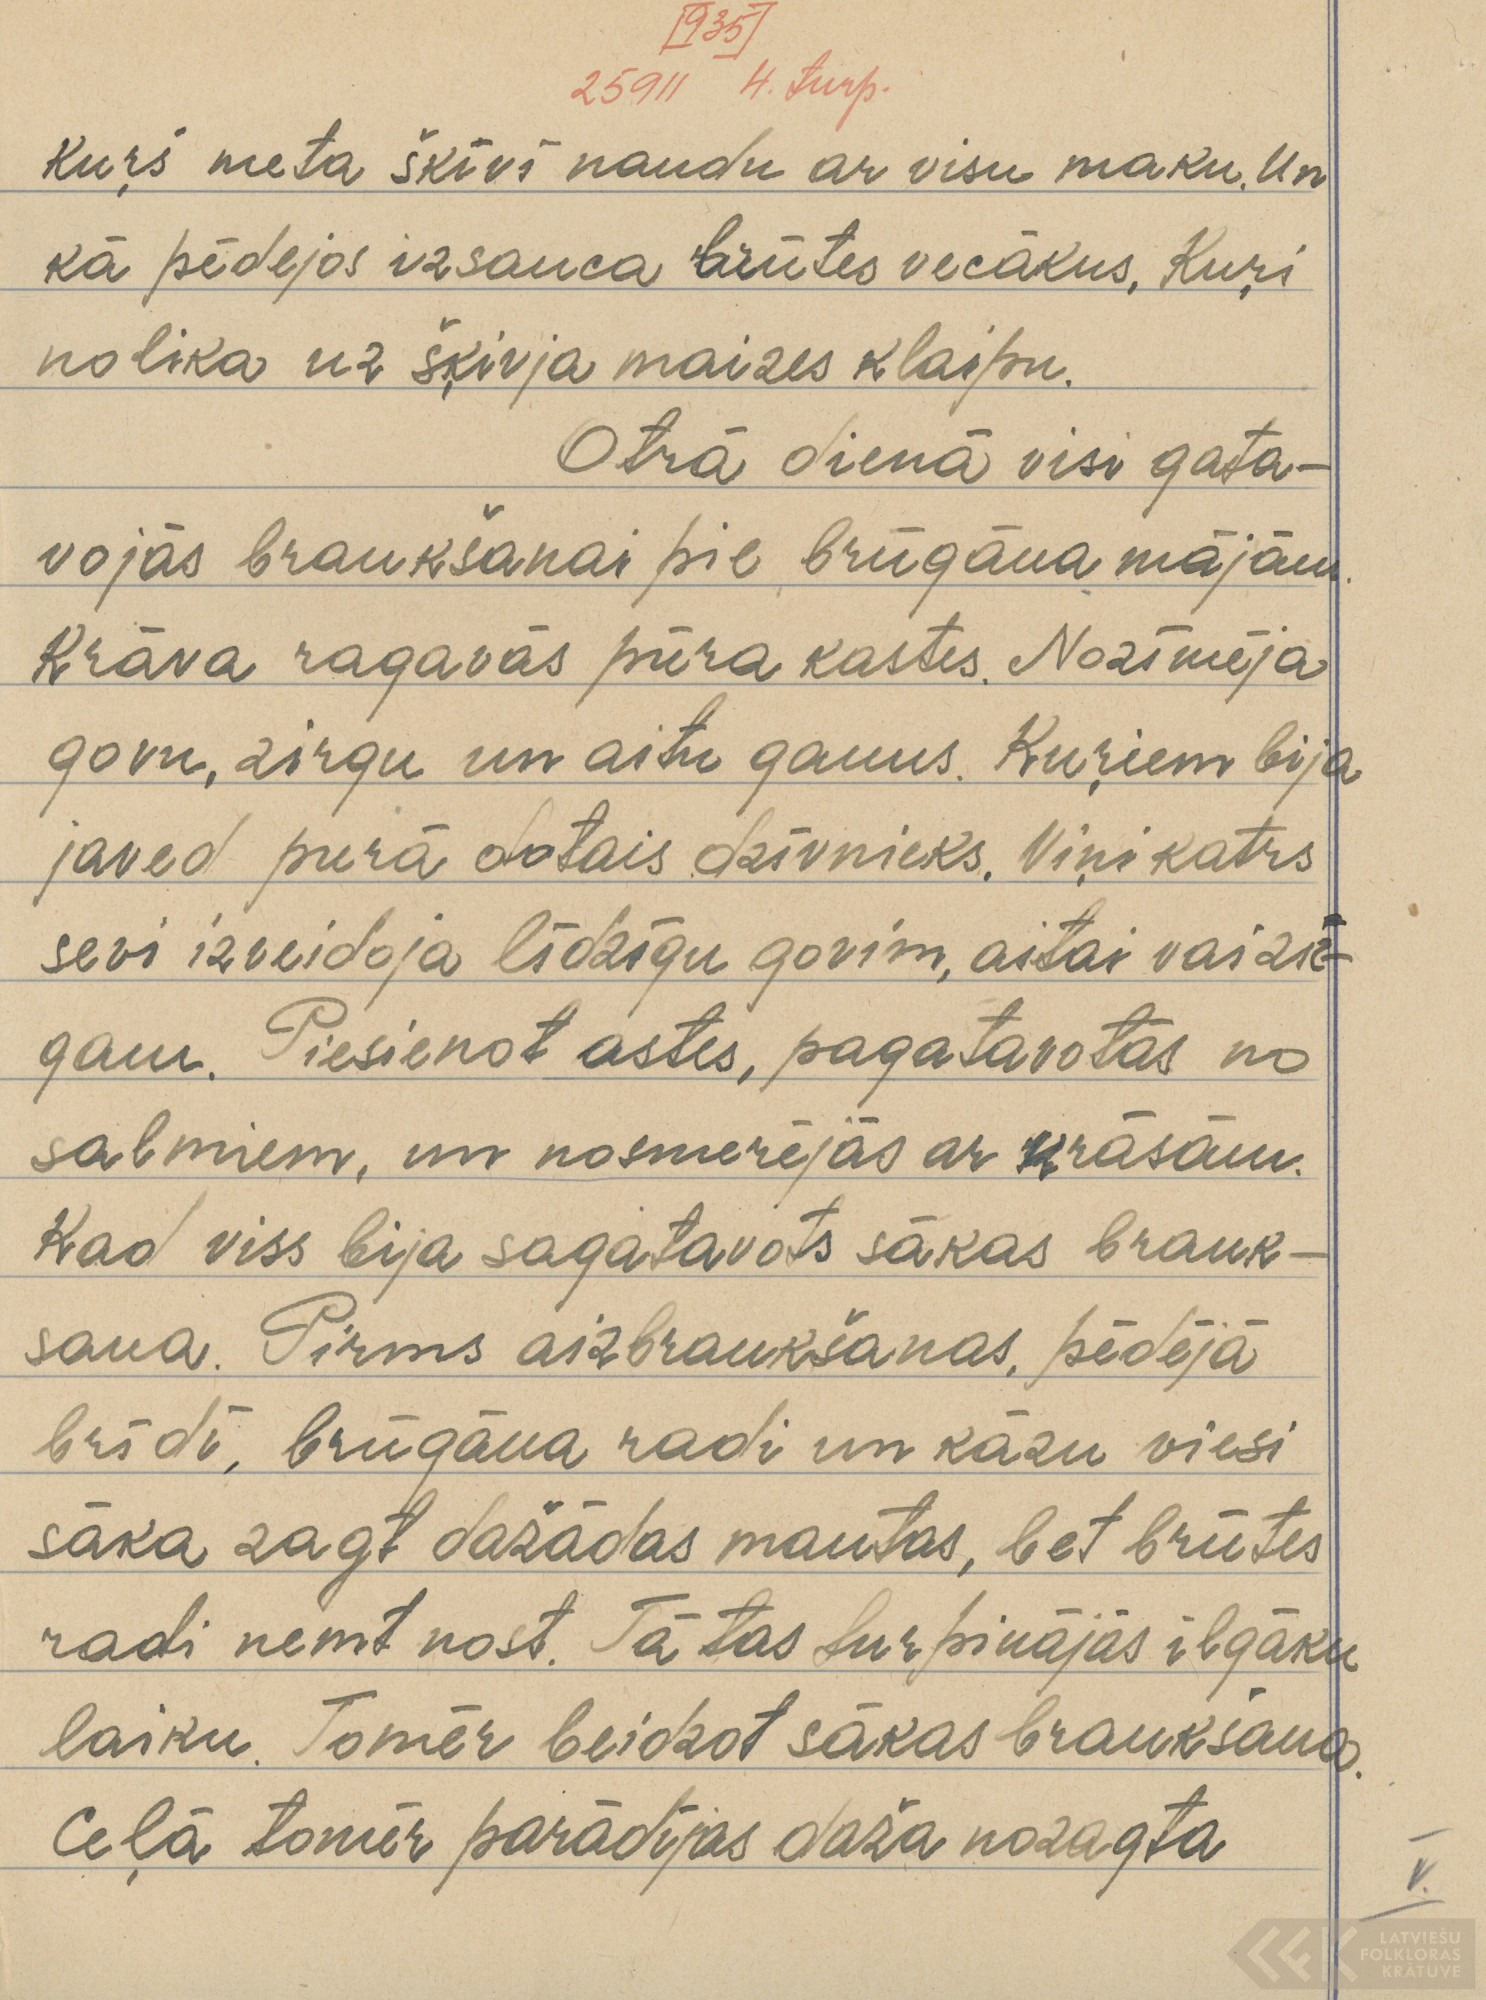 [935]
25911 4. turp.
Kuŗš meta šķīvī naudu ar visu maku. Un
kā pēdejos izsauca brūtes vecākus, Kuŗi
nolika uz šķivja maizes klaipu.
Otrā dienā visi gata-
vojās braukšanai pie brūgāna mājām.
Krāva ragavās pūra kastes. Nozīmēja
govu, zirgu un aitu ganus. Kuŗiem bija
javed purā dotais dzīvnieks. Viņi katrs
sevi izveidoja līdzīgu govim, aitai vai zir-
gam. Piesienot astes, pagatavotas no
salmiem, un nosmerējās ar krāsām.
Kad viss bija sagatavots sākas brauk-
sana. Pirms aizbraukšanas, pēdējā
brīdī, brūgāna radi un kāzu viesi
sāka zagt dažādas mantas, bet brūtes
radi nemt nost. Tā tas turpinājās ilgāku
laiku. Tomēr beidzot sākas braukšana.
Ceļā tomēr parādījas daža nozagta
V.
LATVIEŠU
FOLKLORAS
KRĀTUVE